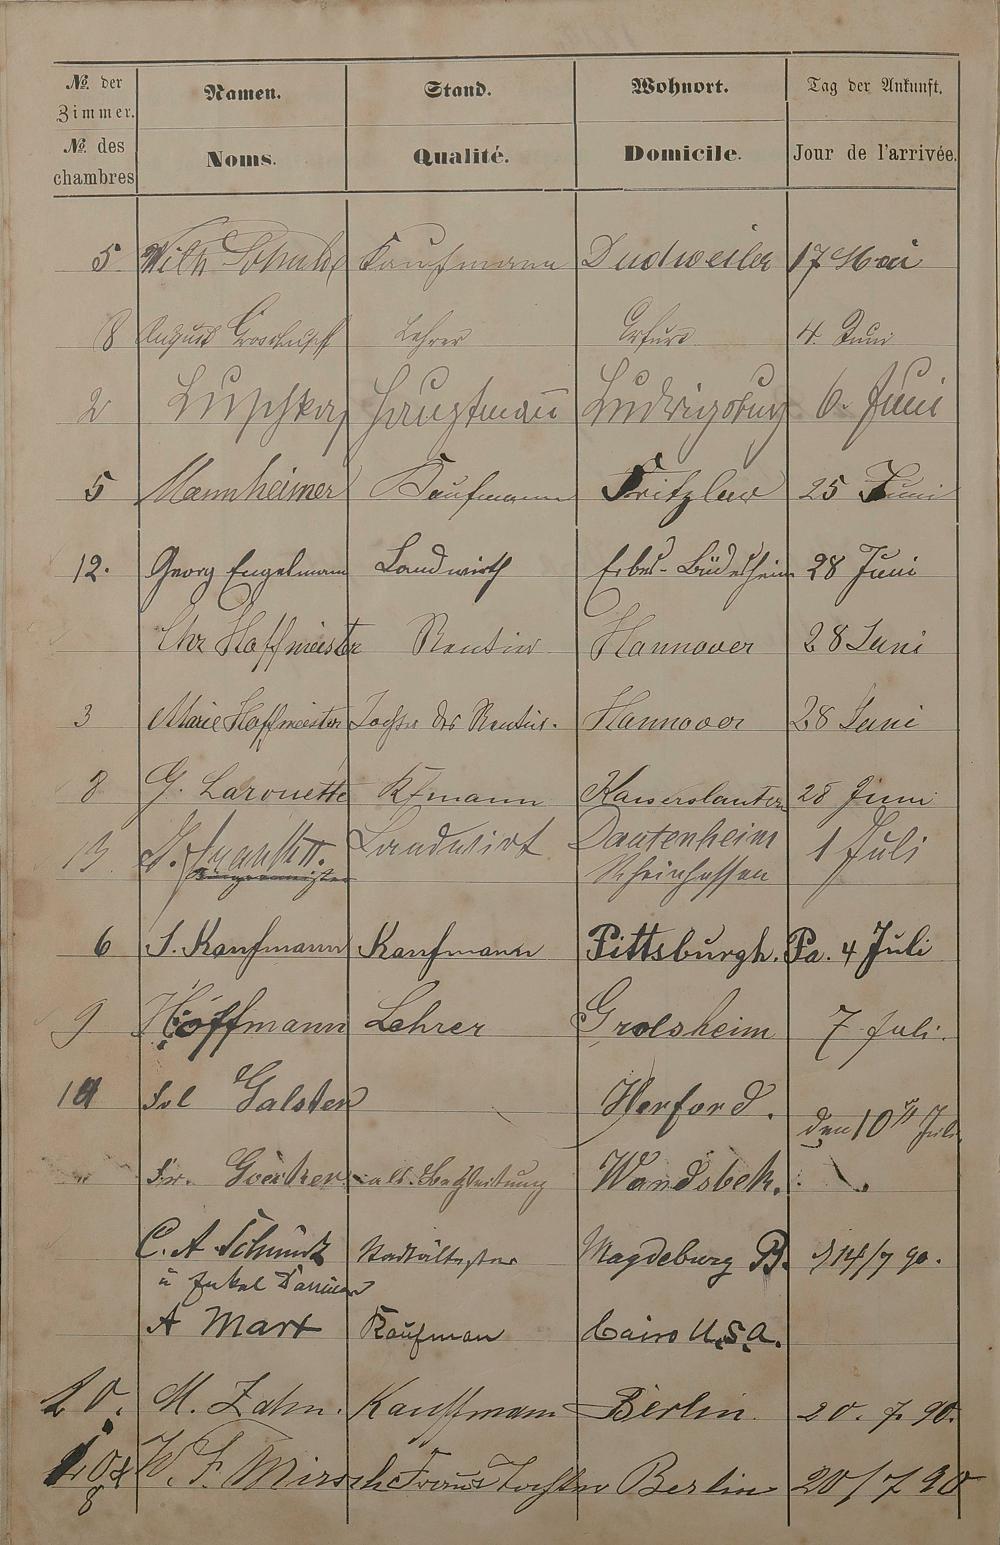 № der Zimmer. Namen. Stand. Wohnort. Tag der Ankunft.
№ des chambres Noms. Qualité. Domicile. Jour de l'arrivée.
5. Wilh Kaufmann Dudweiler 17 Mai
8 August Lehrer Erfurt 4. Juni
2 Hauptmann Ludwigsburg 6. Juni
5 Mannheimer Kaufmann Fritzlar 25 Juni
12. Georg Engelmann Landwirth Erbes-Büdesheim 28 Juni
Chr Hoffmeister Rentier Hannover 28 Juni
3 Marie Hoffmeister Tochter des Rentier. Hannover 28 Juni
8 G. Laronette Kfmann Kaiserslautern 28 Juni
13 J. Frank II. Landwirt Dautenheim 1 Juli
Bürgermeister Rheinhessen
6 S. Kaufmann Kaufmann Pittsburgh. Pa. 4 Juli
9 Hoffmann Lehrer Grolsheim 7 Juli.
Galsten Herford. den 10 Juli
Fr. Wandsbek.
C. A. Schmidt Stadtältester Magdeburg B. 14/7 90.
u Enkel
A Marx Kaufman Cairo U.S.A.
20. M. Zahn. Kauffmann Berlin 20. 7. 90.
W. F. Mirsch Frau u Tochter Berlin 20/7 90